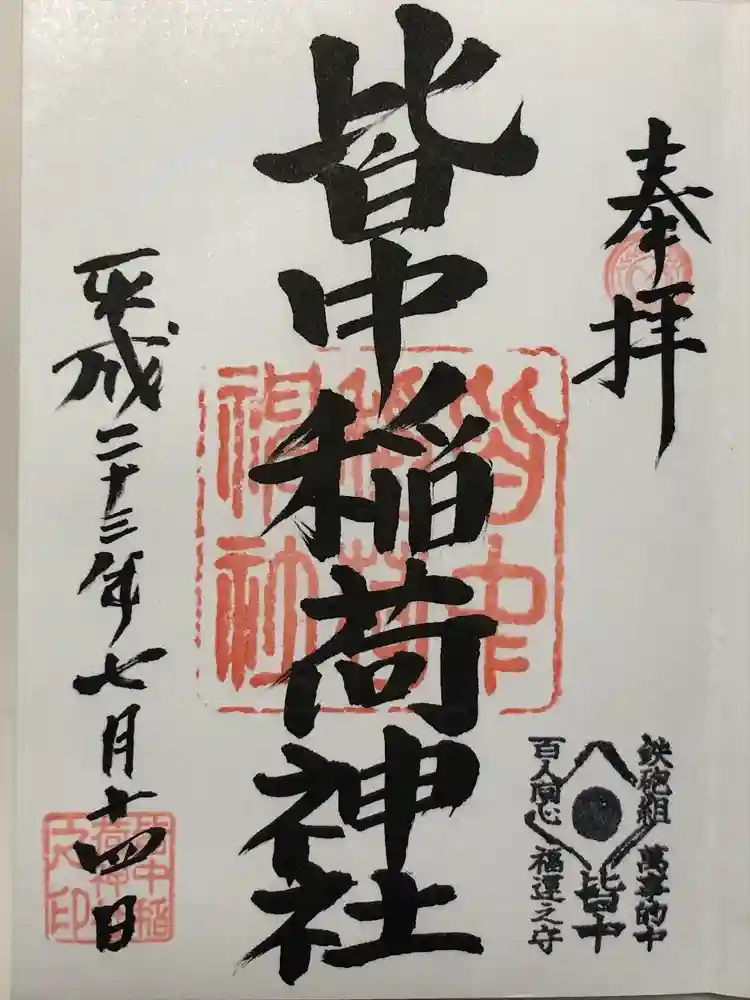 奉拝
皆中稲荷神社
平成二十三年七月十四日
鉄砲組
萬事的中
百人同心
福運之守
皆中
皆中稲荷神社
皆中稲荷神社之印